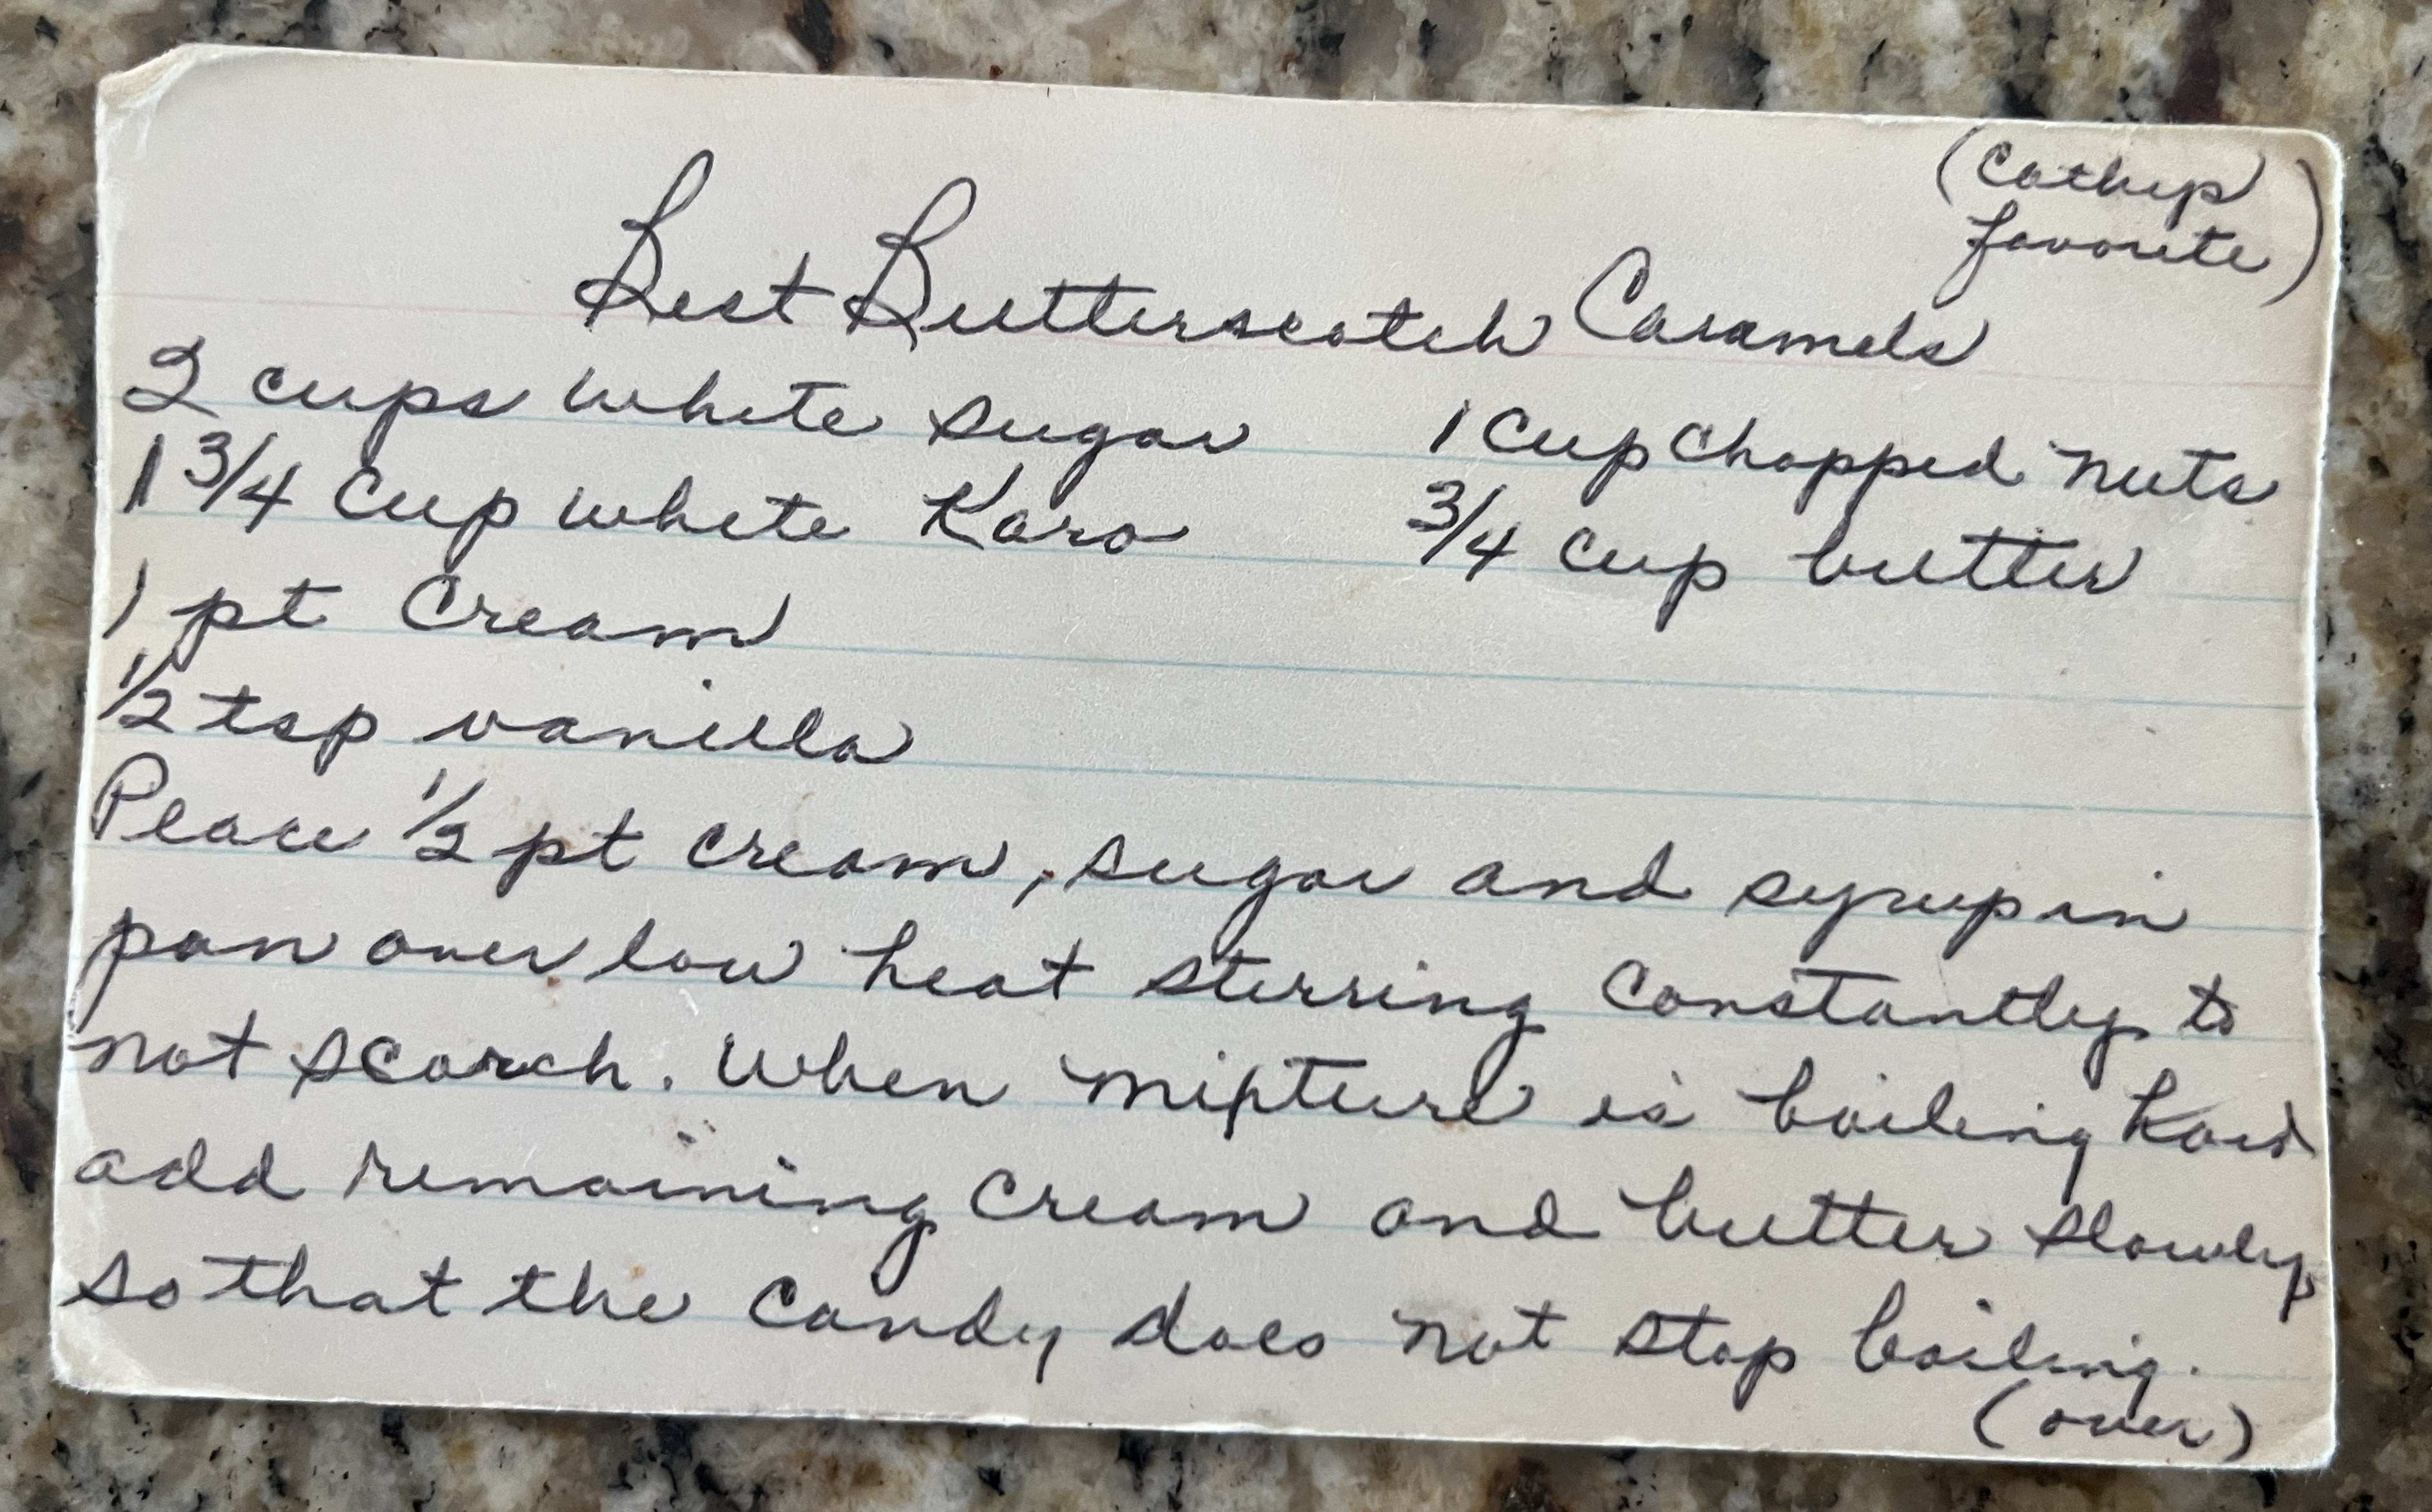 (Cathys
favorite)
Best Butterscotch Caramels
2 cups white sugar
1 cup chopped nuts
1 3/4 cup white Karo
3/4 cup butter
1 pt cream
1/2 tsp vanilla
Place 1/2 pt cream, sugar and syrup in
pan over low heat stirring constantly to
not scorch. When mixture is boiling hard
add remaining cream and butter slowly
so that the candy does not stop boiling.
(over)